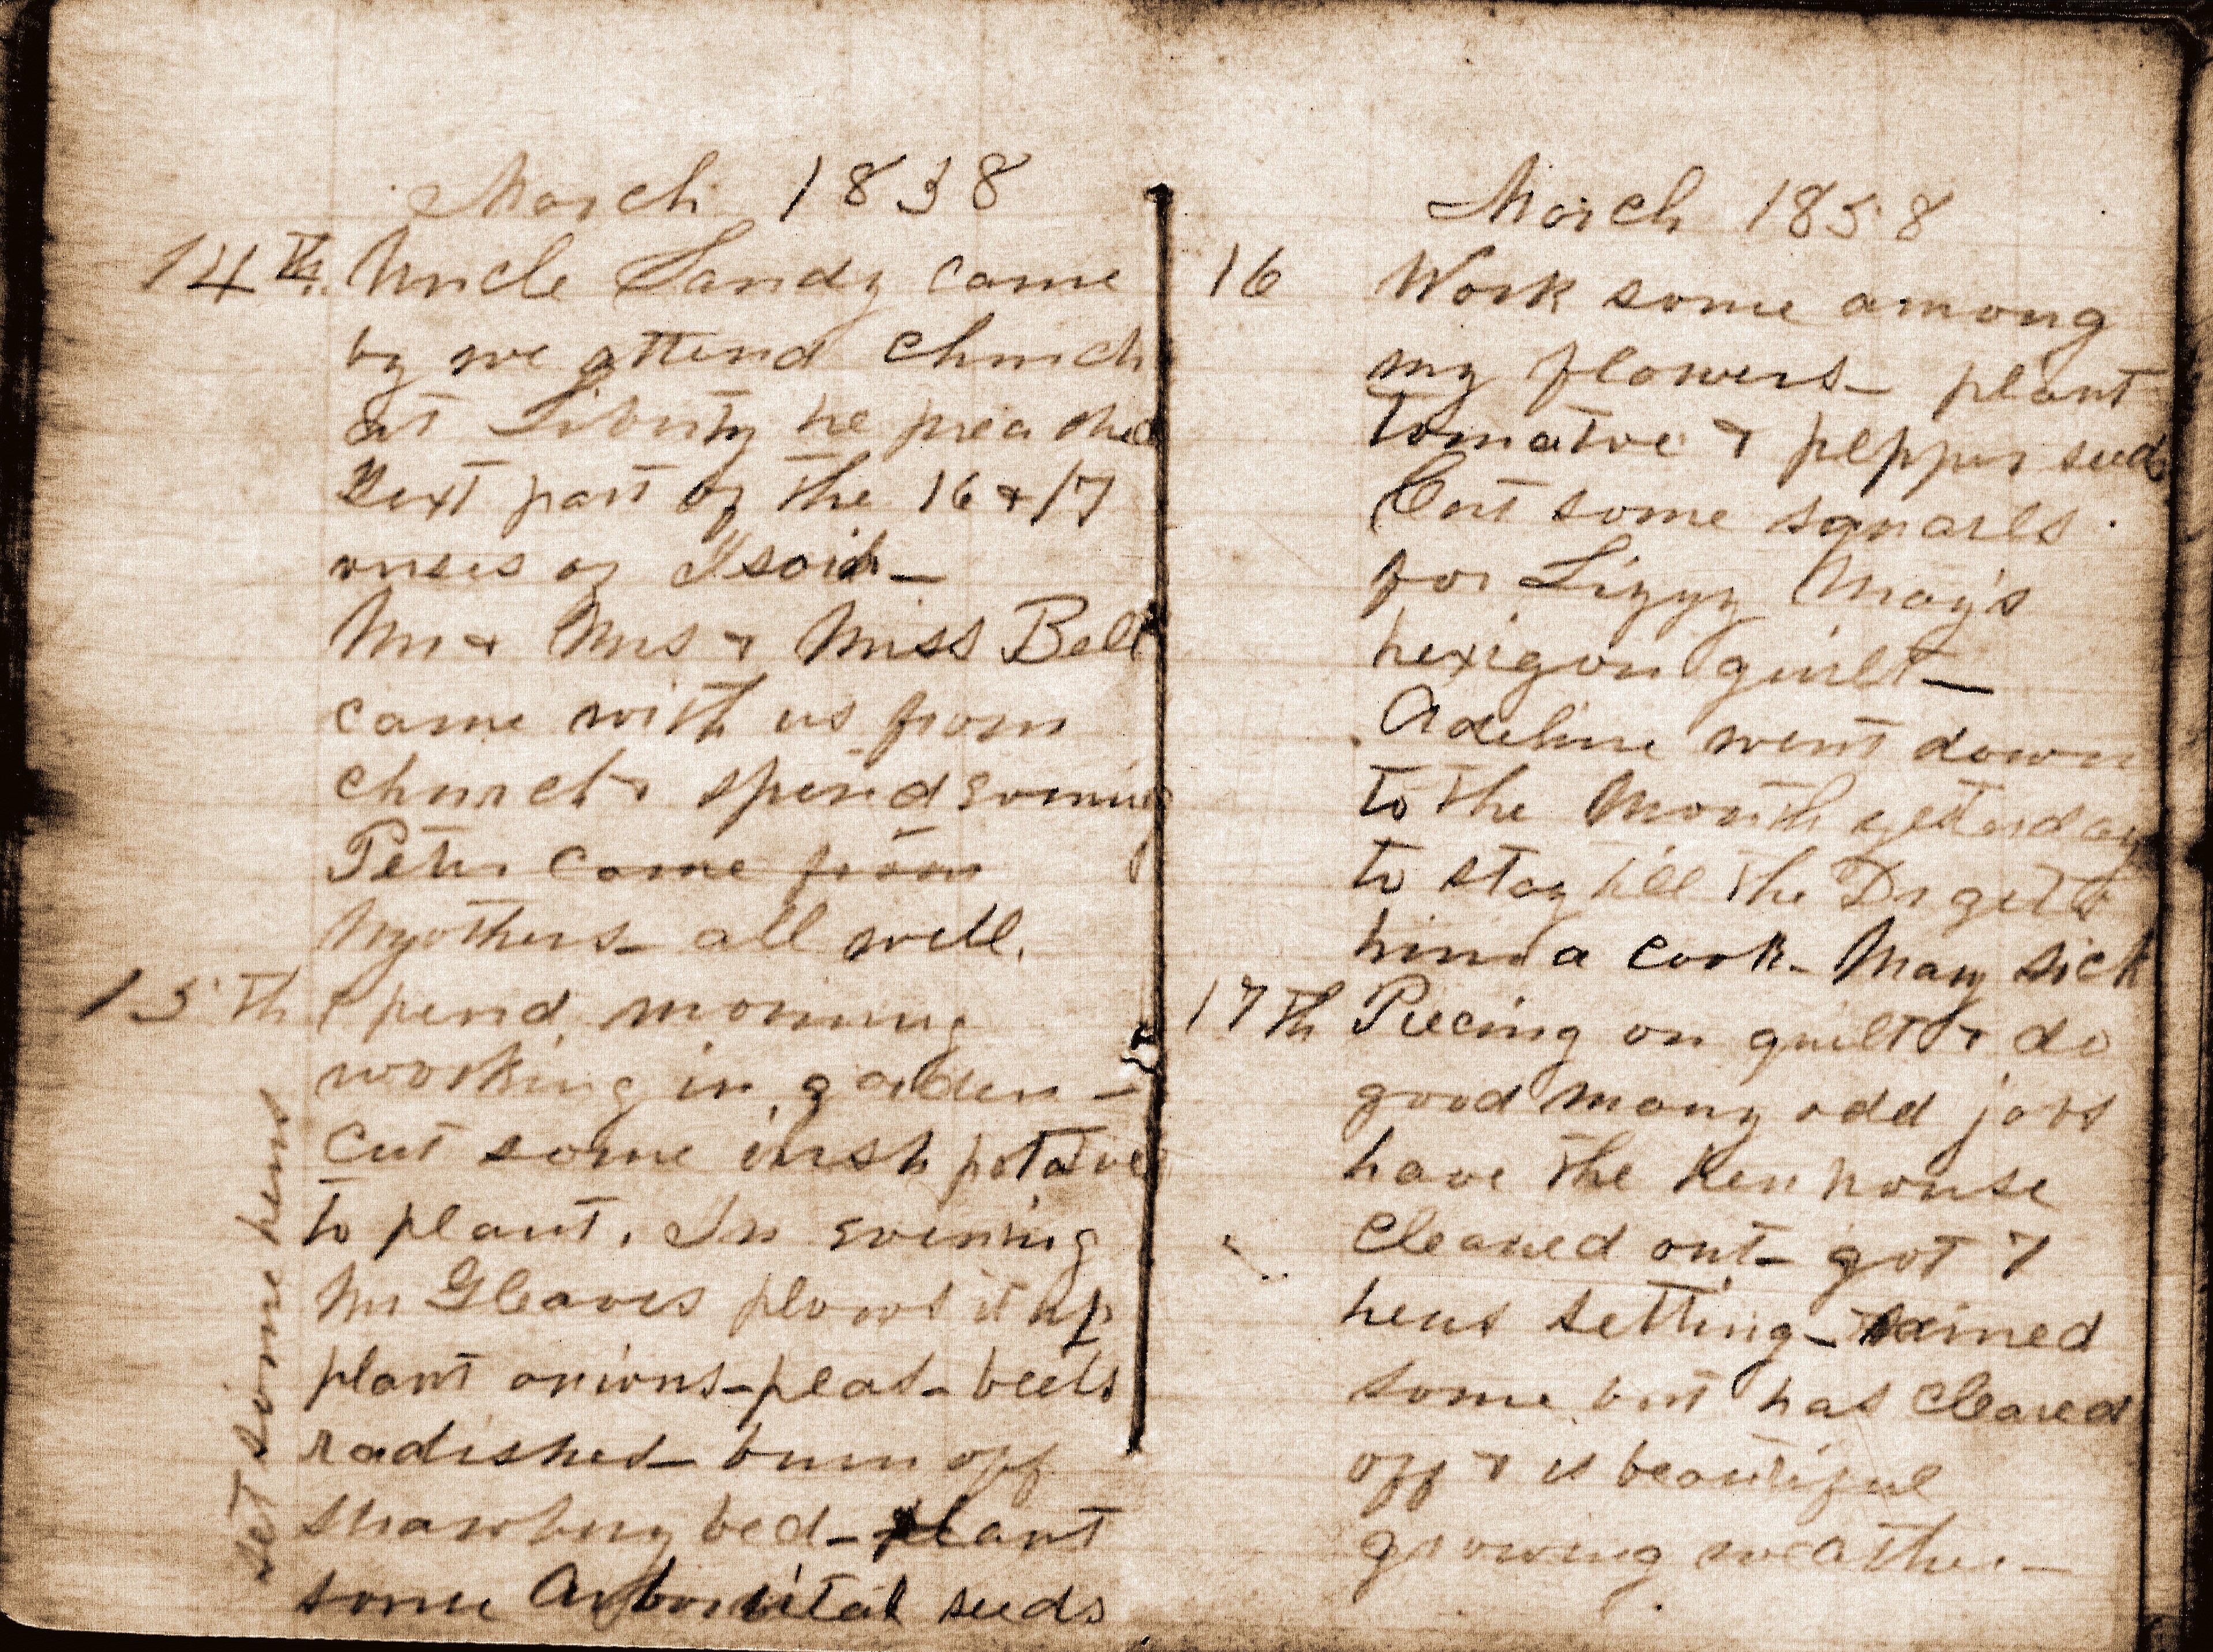 March 1838
14th Uncle Sandy came
by we attend church
at Liberty he preached
Text part of the 16 & 17
verses of
Mr & Mrs & Miss Bell
came with us from
church & spend evening
Peter came from
Mothers - all well.
15th Spend morning
working in garden -
cut some irish potatoes
to plant. In evening
Mr Gleaves plows it up
plant onions - peas - beets
radishes - burn off
strawbery bed - plant
some Arborvitae seeds
set some hens
March 1858
16 Work some among
my flowers - plant
tomatoe & pepper seed
Cut some squares
for Lizzy May's
hexigon quilt -
Adeline went down
to the Mouth yesterday
to stay till the Dr gets
him a cook - Mary sick
17th Piecing on quilt & do
good many odd jobs
have the hen house
cleaned out - got 7
hens setting - rained
some but has cleared
off & is beautiful
growing weather -